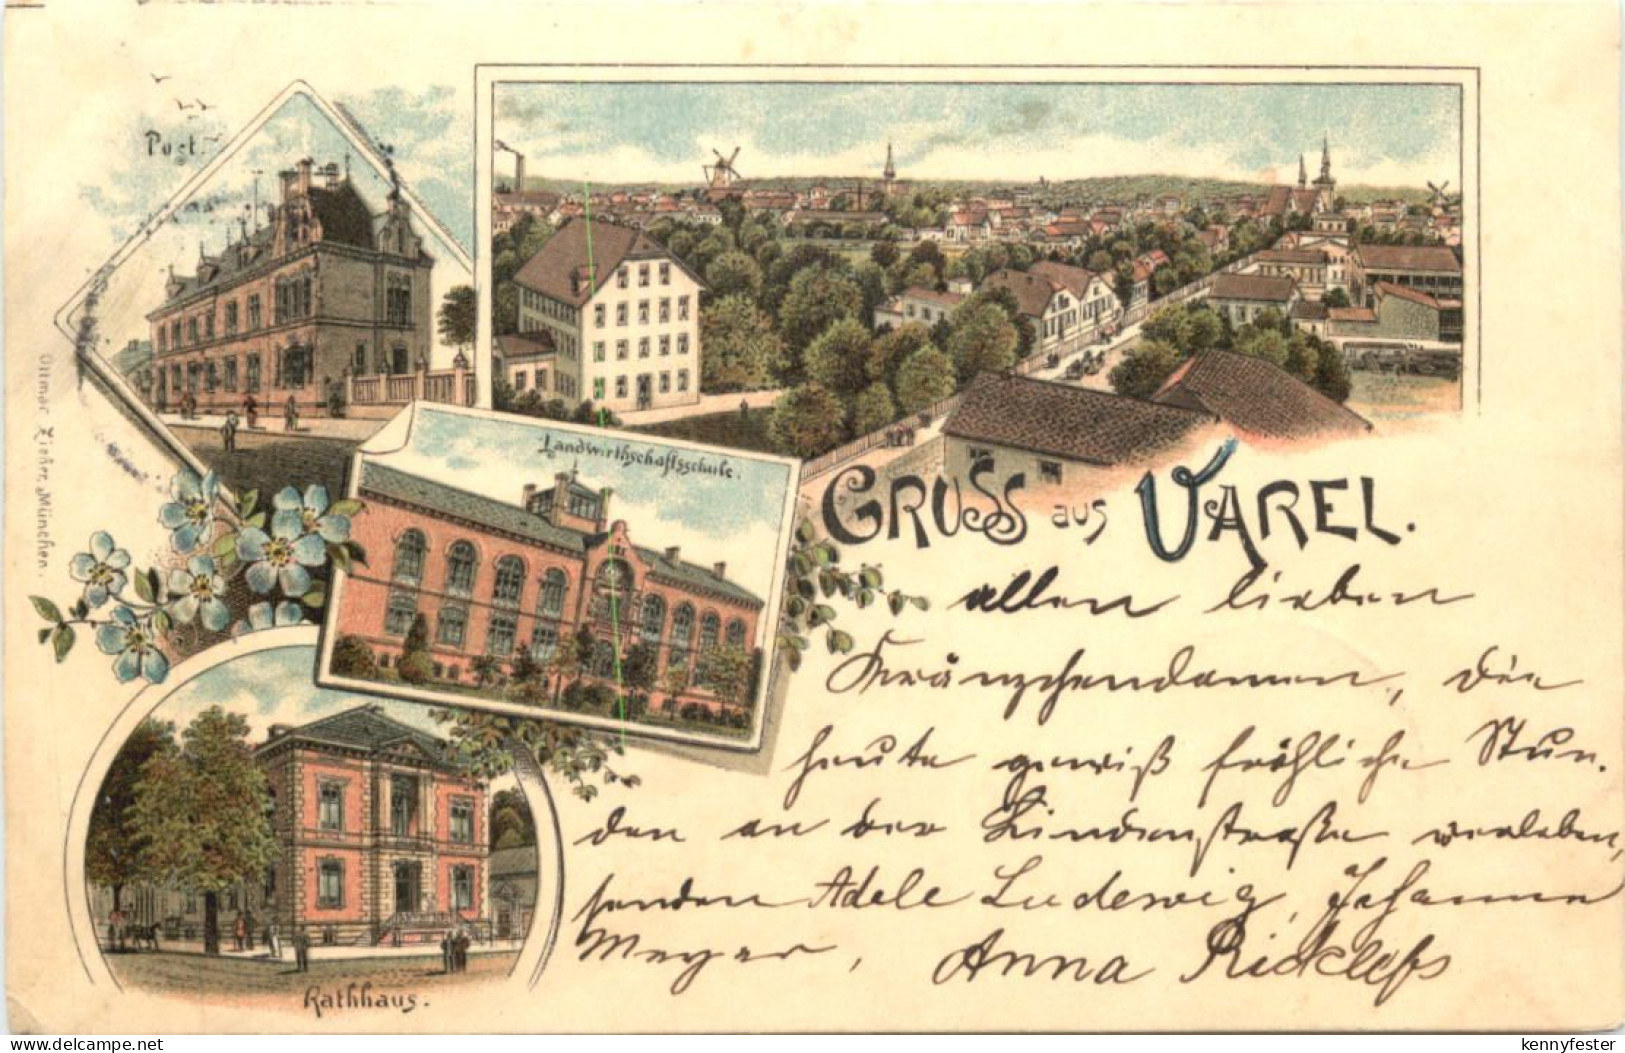 Post.
Landwirthschaftsschule.
Rathhaus.
Ottmar Zieher, München.
GRUSS aus VAREL.
allen lieben
Kränzchendamen, die
heute gewiß fröhliche Stun-
den an der Lindenstraße verleben,
senden Adele Ludewig, Johanne
Meyer, Anna Ricklefs
delcampe.net
kennyfester